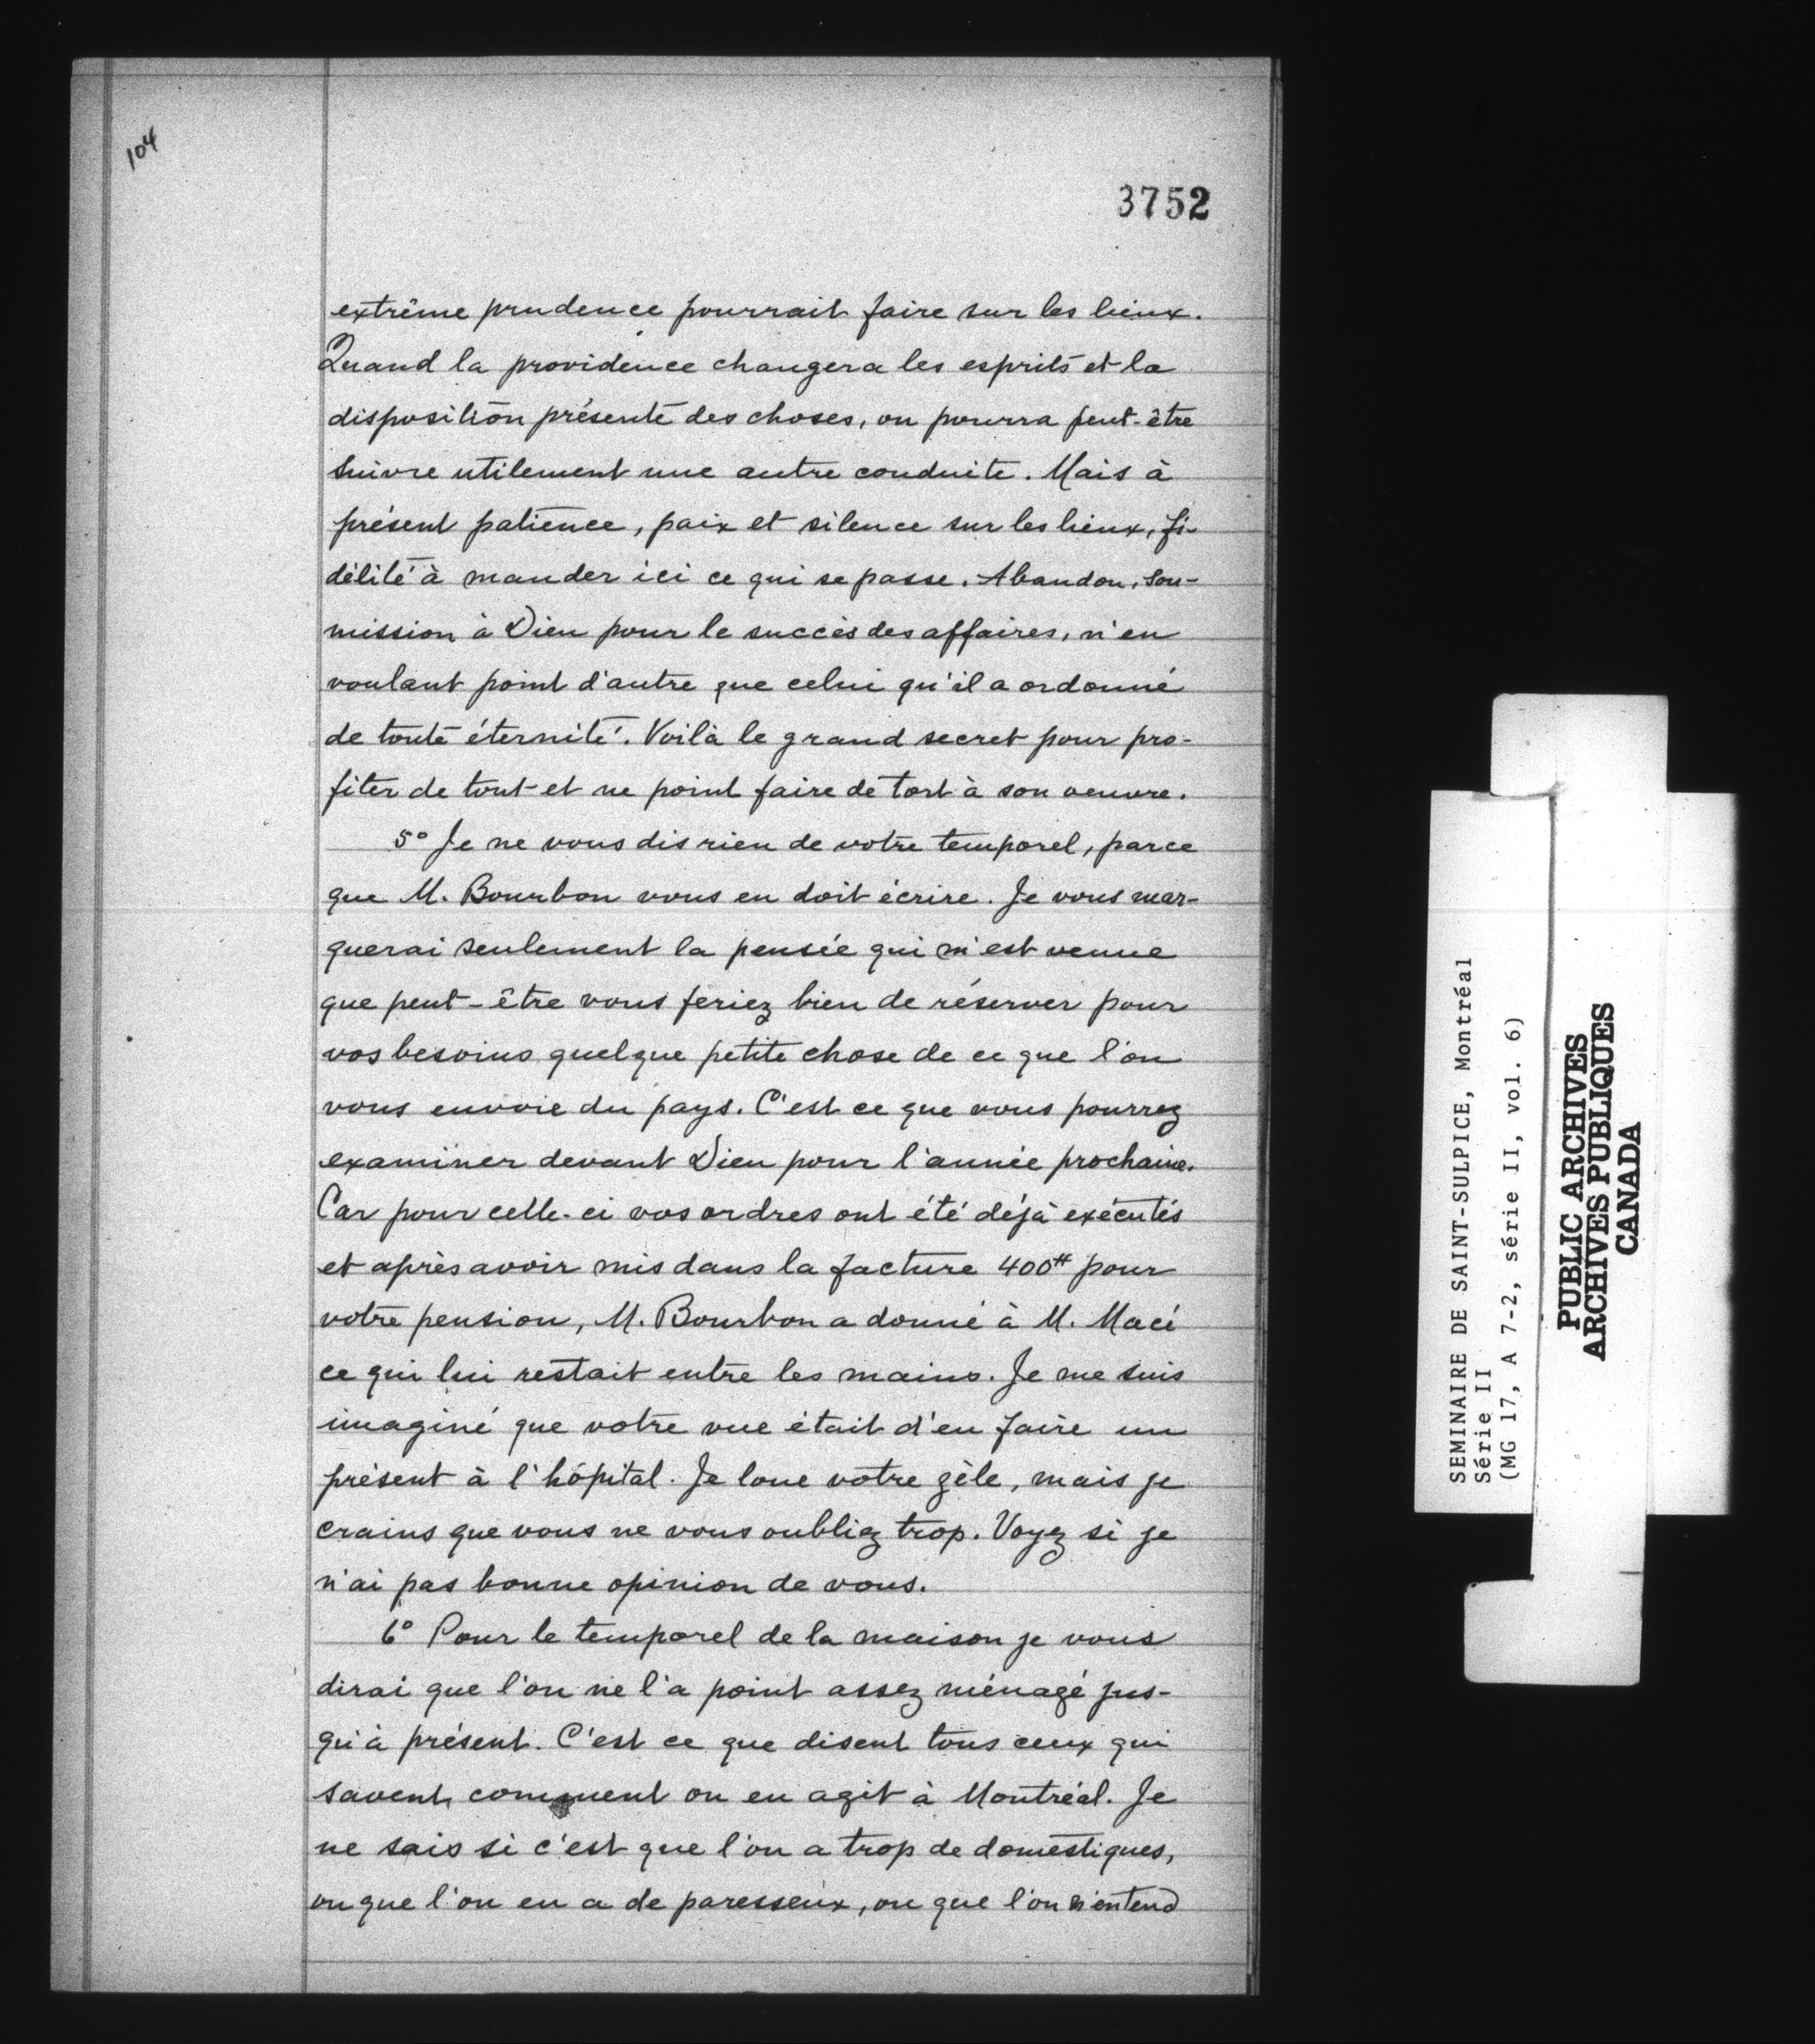 104
3752
extrême prudence pourrait faire sur les lieux.
Quand la providence changera les esprits et la
disposition présente des choses, on pourra peut-être
suivre utilement une autre conduite. Mais à
présent patience, paix et silence sur les lieux, fi-
délité à mander ici ce qui se passe. Abandon, sou-
mission à Dieu pour le succès des affaires, n'en
voulant point d'autre que celui qu'il a ordonné
de toute éternité. Voilà le grand secret pour pro-
fiter de tout et ne point faire de tort à son oeuvre.
5° Je ne vous dis rien de votre temporel, parce
que M. Bourbon vous en doit écrire. Je vous mar-
querai seulement la pensée qui m'est venue
que peut-être vous feriez bien de réserver pour
vos besoins quelque petite chose de ce que l'on
vous envoie du pays. C'est ce que vous pourrez
examiner devant Dieu pour l'année prochaine.
Car pour celle-ci vos ordres ont été déjà exécutés
et après avoir mis dans la facture 400tt pour
votre pension, M. Bourbon a donné à M. Macé
ce qui lui restait entre les mains. Je me suis
imaginé que votre vue était d'en faire un
présent à l'hôpital. Je loue votre zèle, mais je
crains que vous ne vous oubliez trop. Voyez si je
n'ai pas bonne opinion de vous.
6° Pour le temporel de la maison je vous
dirai que l'on ne l'a point assez ménagé jus-
qu'à présent. C'est ce que disent tous ceux qui
savent comment on en agit à Montréal. Je
ne sais si c'est que l'on a trop de domestiques,
ou que l'on en a de paresseux, ou que l'on n'entend
SEMINAIRE DE SAINT-SULPICE, Montréal
Série II
(MG 17, A 7-2, série II, vol. 6)
PUBLIC ARCHIVES
ARCHIVES PUBLIQUES
CANADA